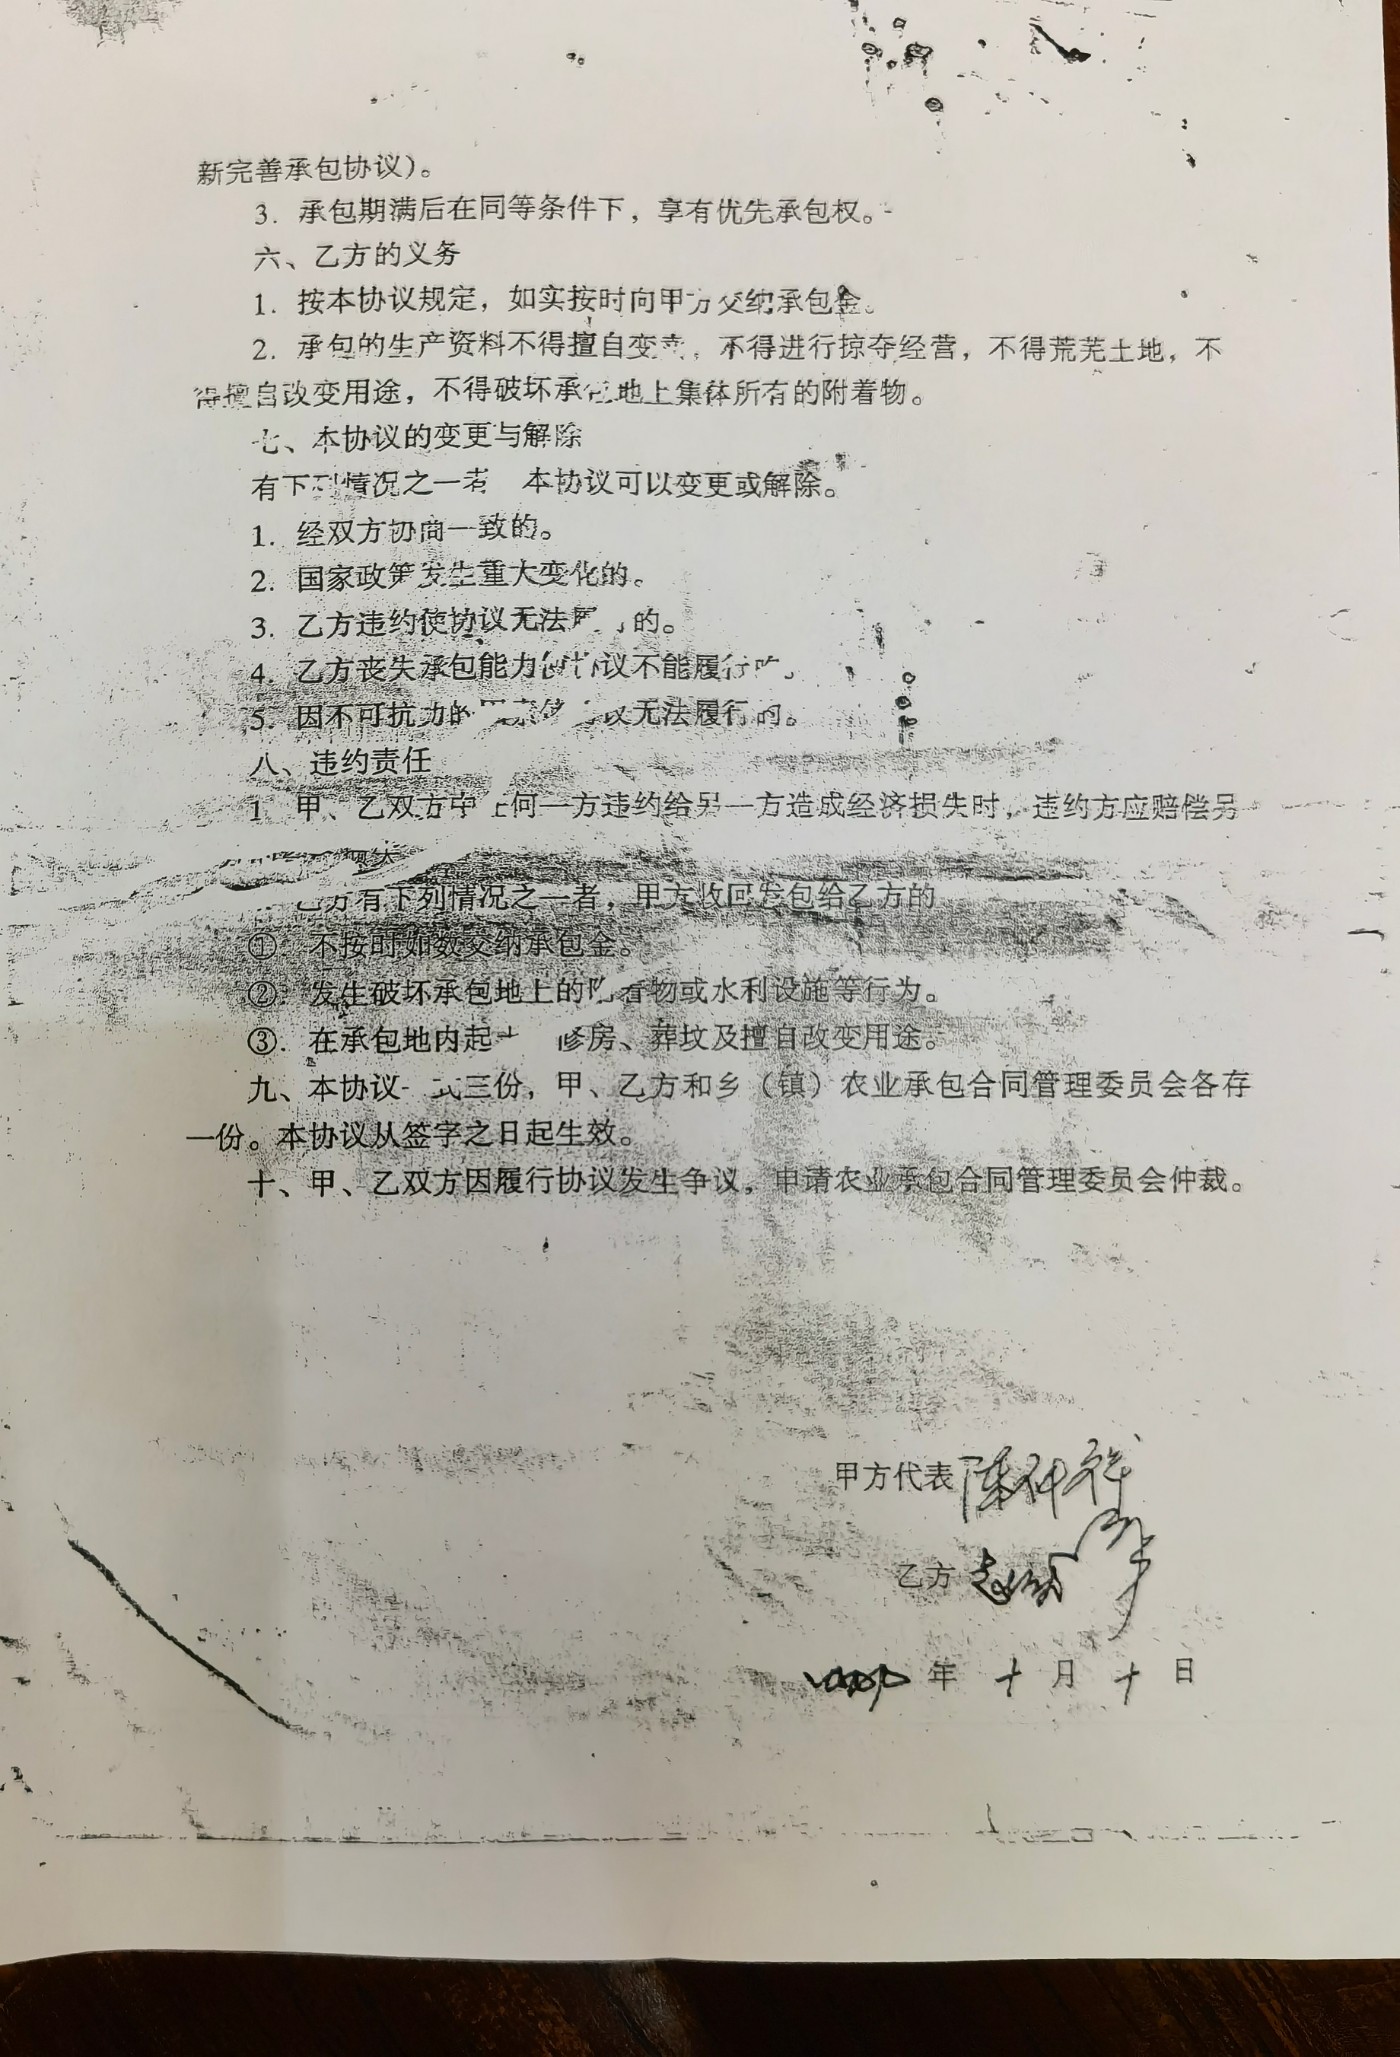 新完善承包协议)。
3. 承包期满后在同等条件下，享有优先承包权。
六、乙方的义务
1. 按本协议规定，如实按时向甲方交纳承包金。
2. 承包的生产资料不得擅自变卖，不得进行掠夺经营，不得荒芜土地，不
得擅自改变用途，不得破坏承包地上集体所有的附着物。
七、本协议的变更与解除
有下列情况之一者 本协议可以变更或解除。
1. 经双方协商一致的。
2. 国家政策发生重大变化的。
3. 乙方违约使协议无法履 的。
4. 乙方丧失承包能力使协议不能履行的。
5. 因不可抗力的 议无法履行的。
八、违约责任
1 甲、乙双方中任何一方违约给另一方造成经济损失时，违约方应赔偿另
乙方有下列情况之一者，甲方收回发包给乙方的
①. 不按时如数交纳承包金。
②. 发生破坏承包地上的附着物或水利设施等行为。
③. 在承包地内起土 修房、葬坟及擅自改变用途。
九、本协议一式三份，甲、乙方和乡（镇）农业承包合同管理委员会各存
一份。本协议从签字之日起生效。
十、甲、乙双方因履行协议发生争议，申请农业承包合同管理委员会仲裁。
甲方代表 陈
乙方 赵
年 十 月 十 日